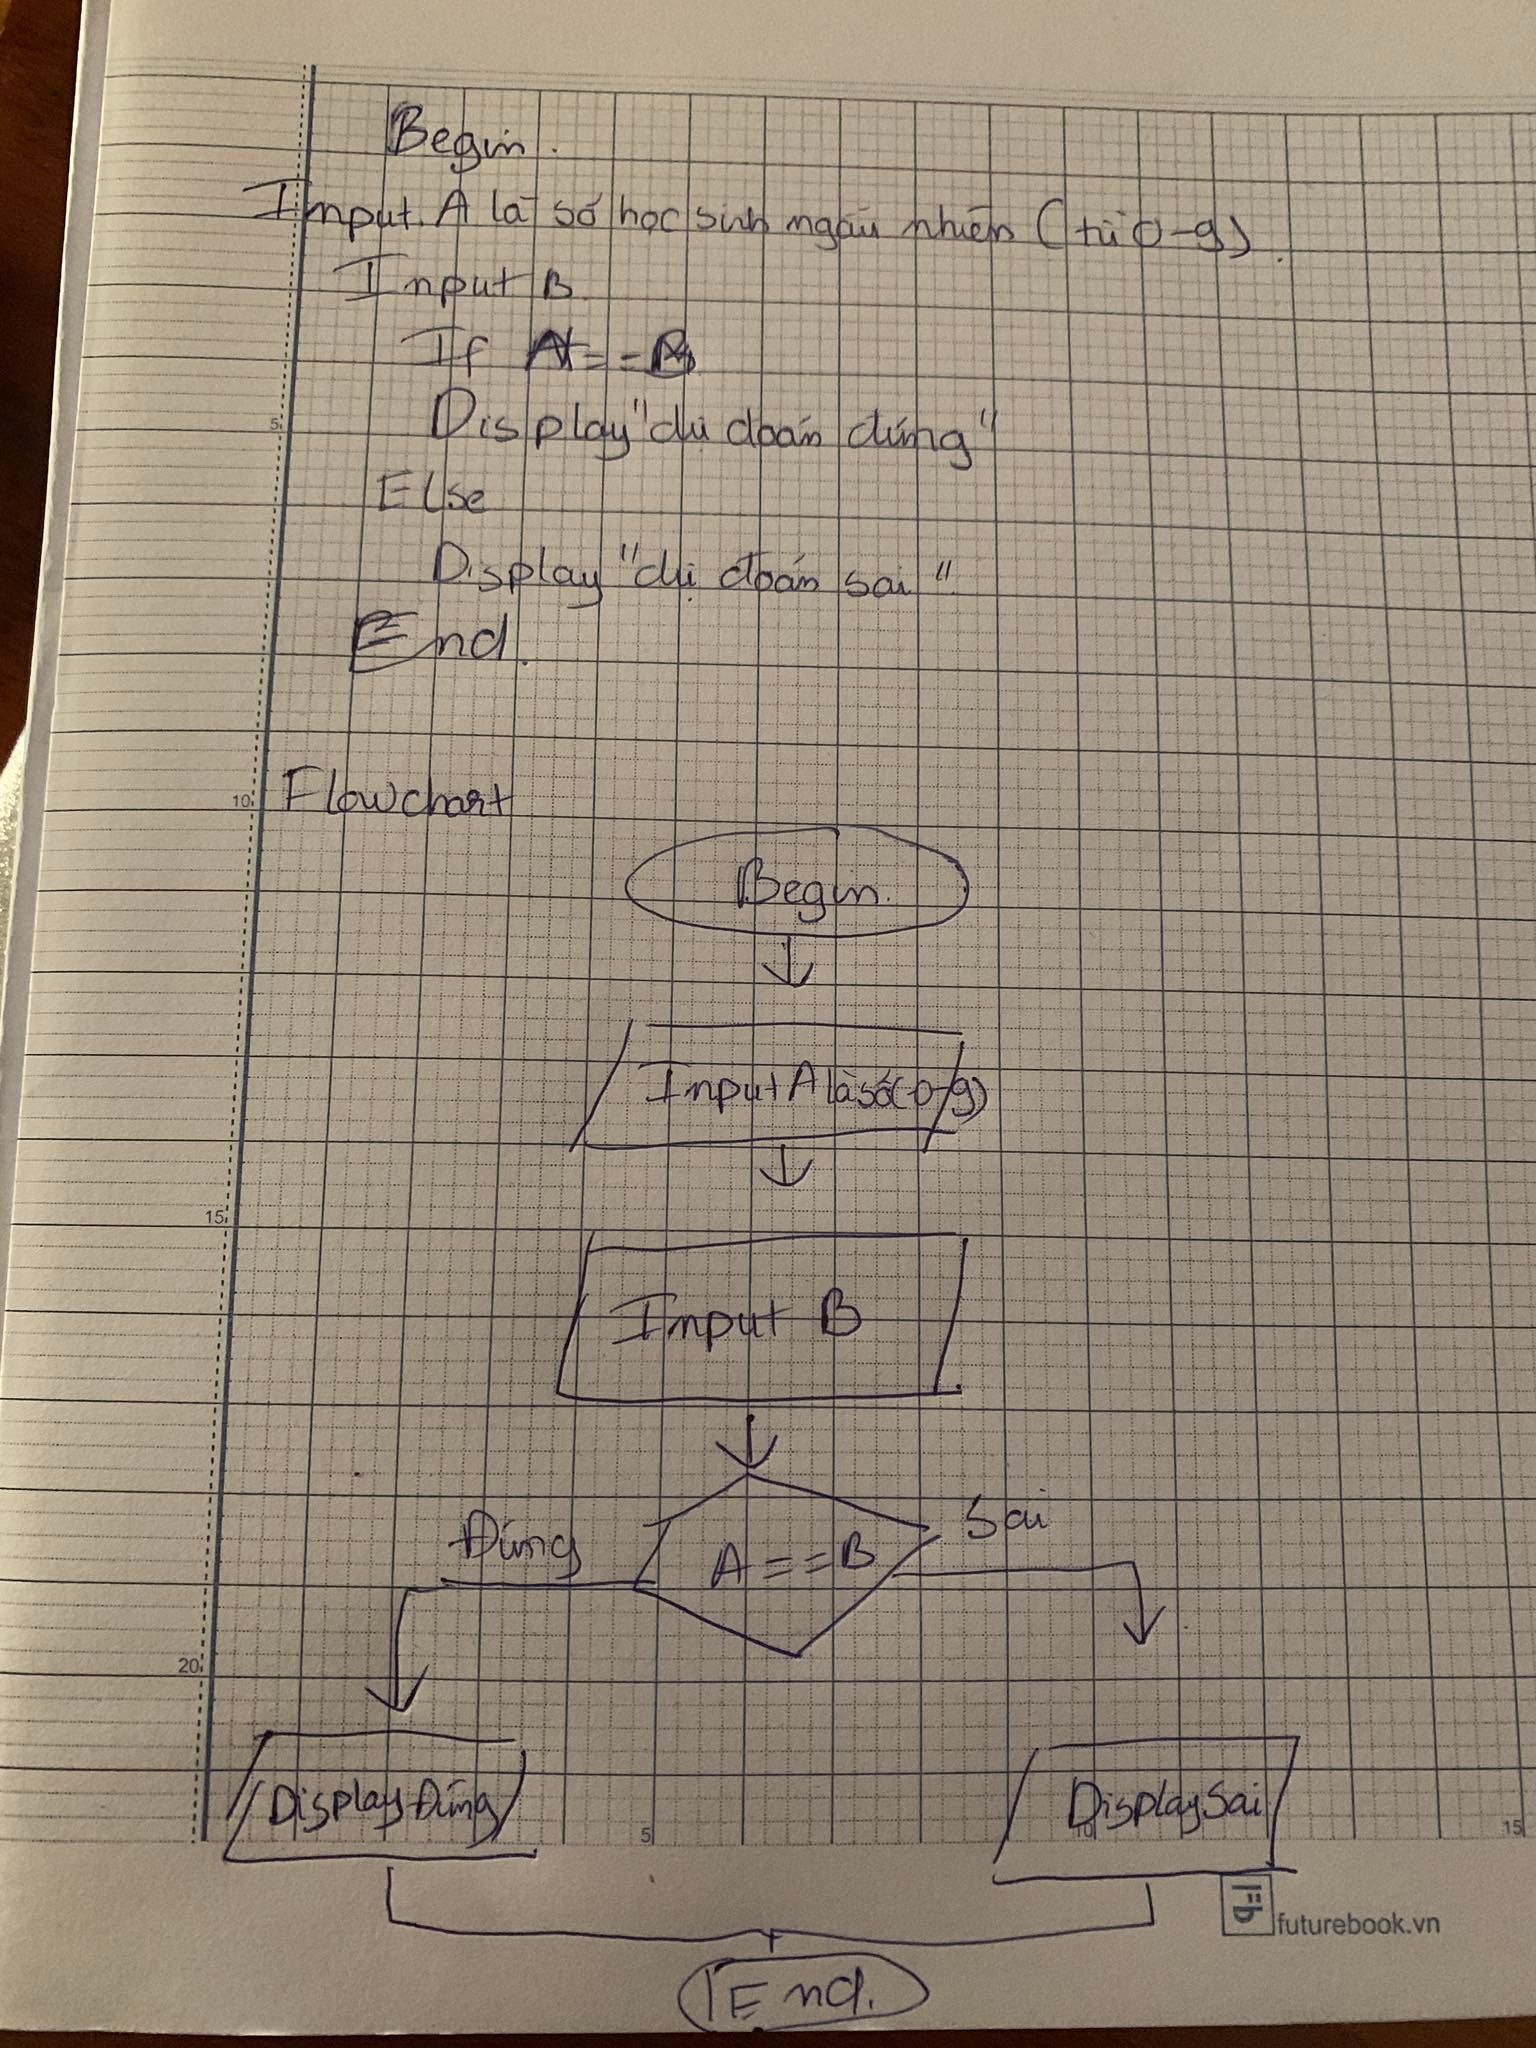 Begin.
Input. A là số học sinh ngẫu nhiên (từ 0-9).
Input B
If A==B
Display "dự doán đúng"
Else
Display "dự đoán sai"
End.
10 Flowchart
Begin.
Input A là số (0-9)
15
Input B
Đúng A==B Sai
20
Display Đúng Display Sai
5 10 15
futurebook.vn
End.